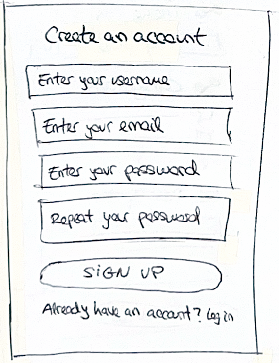 Create an account
Enter your username
Enter your email
Enter your password
Repeat your password
SIGN UP
Already have an account? Log in